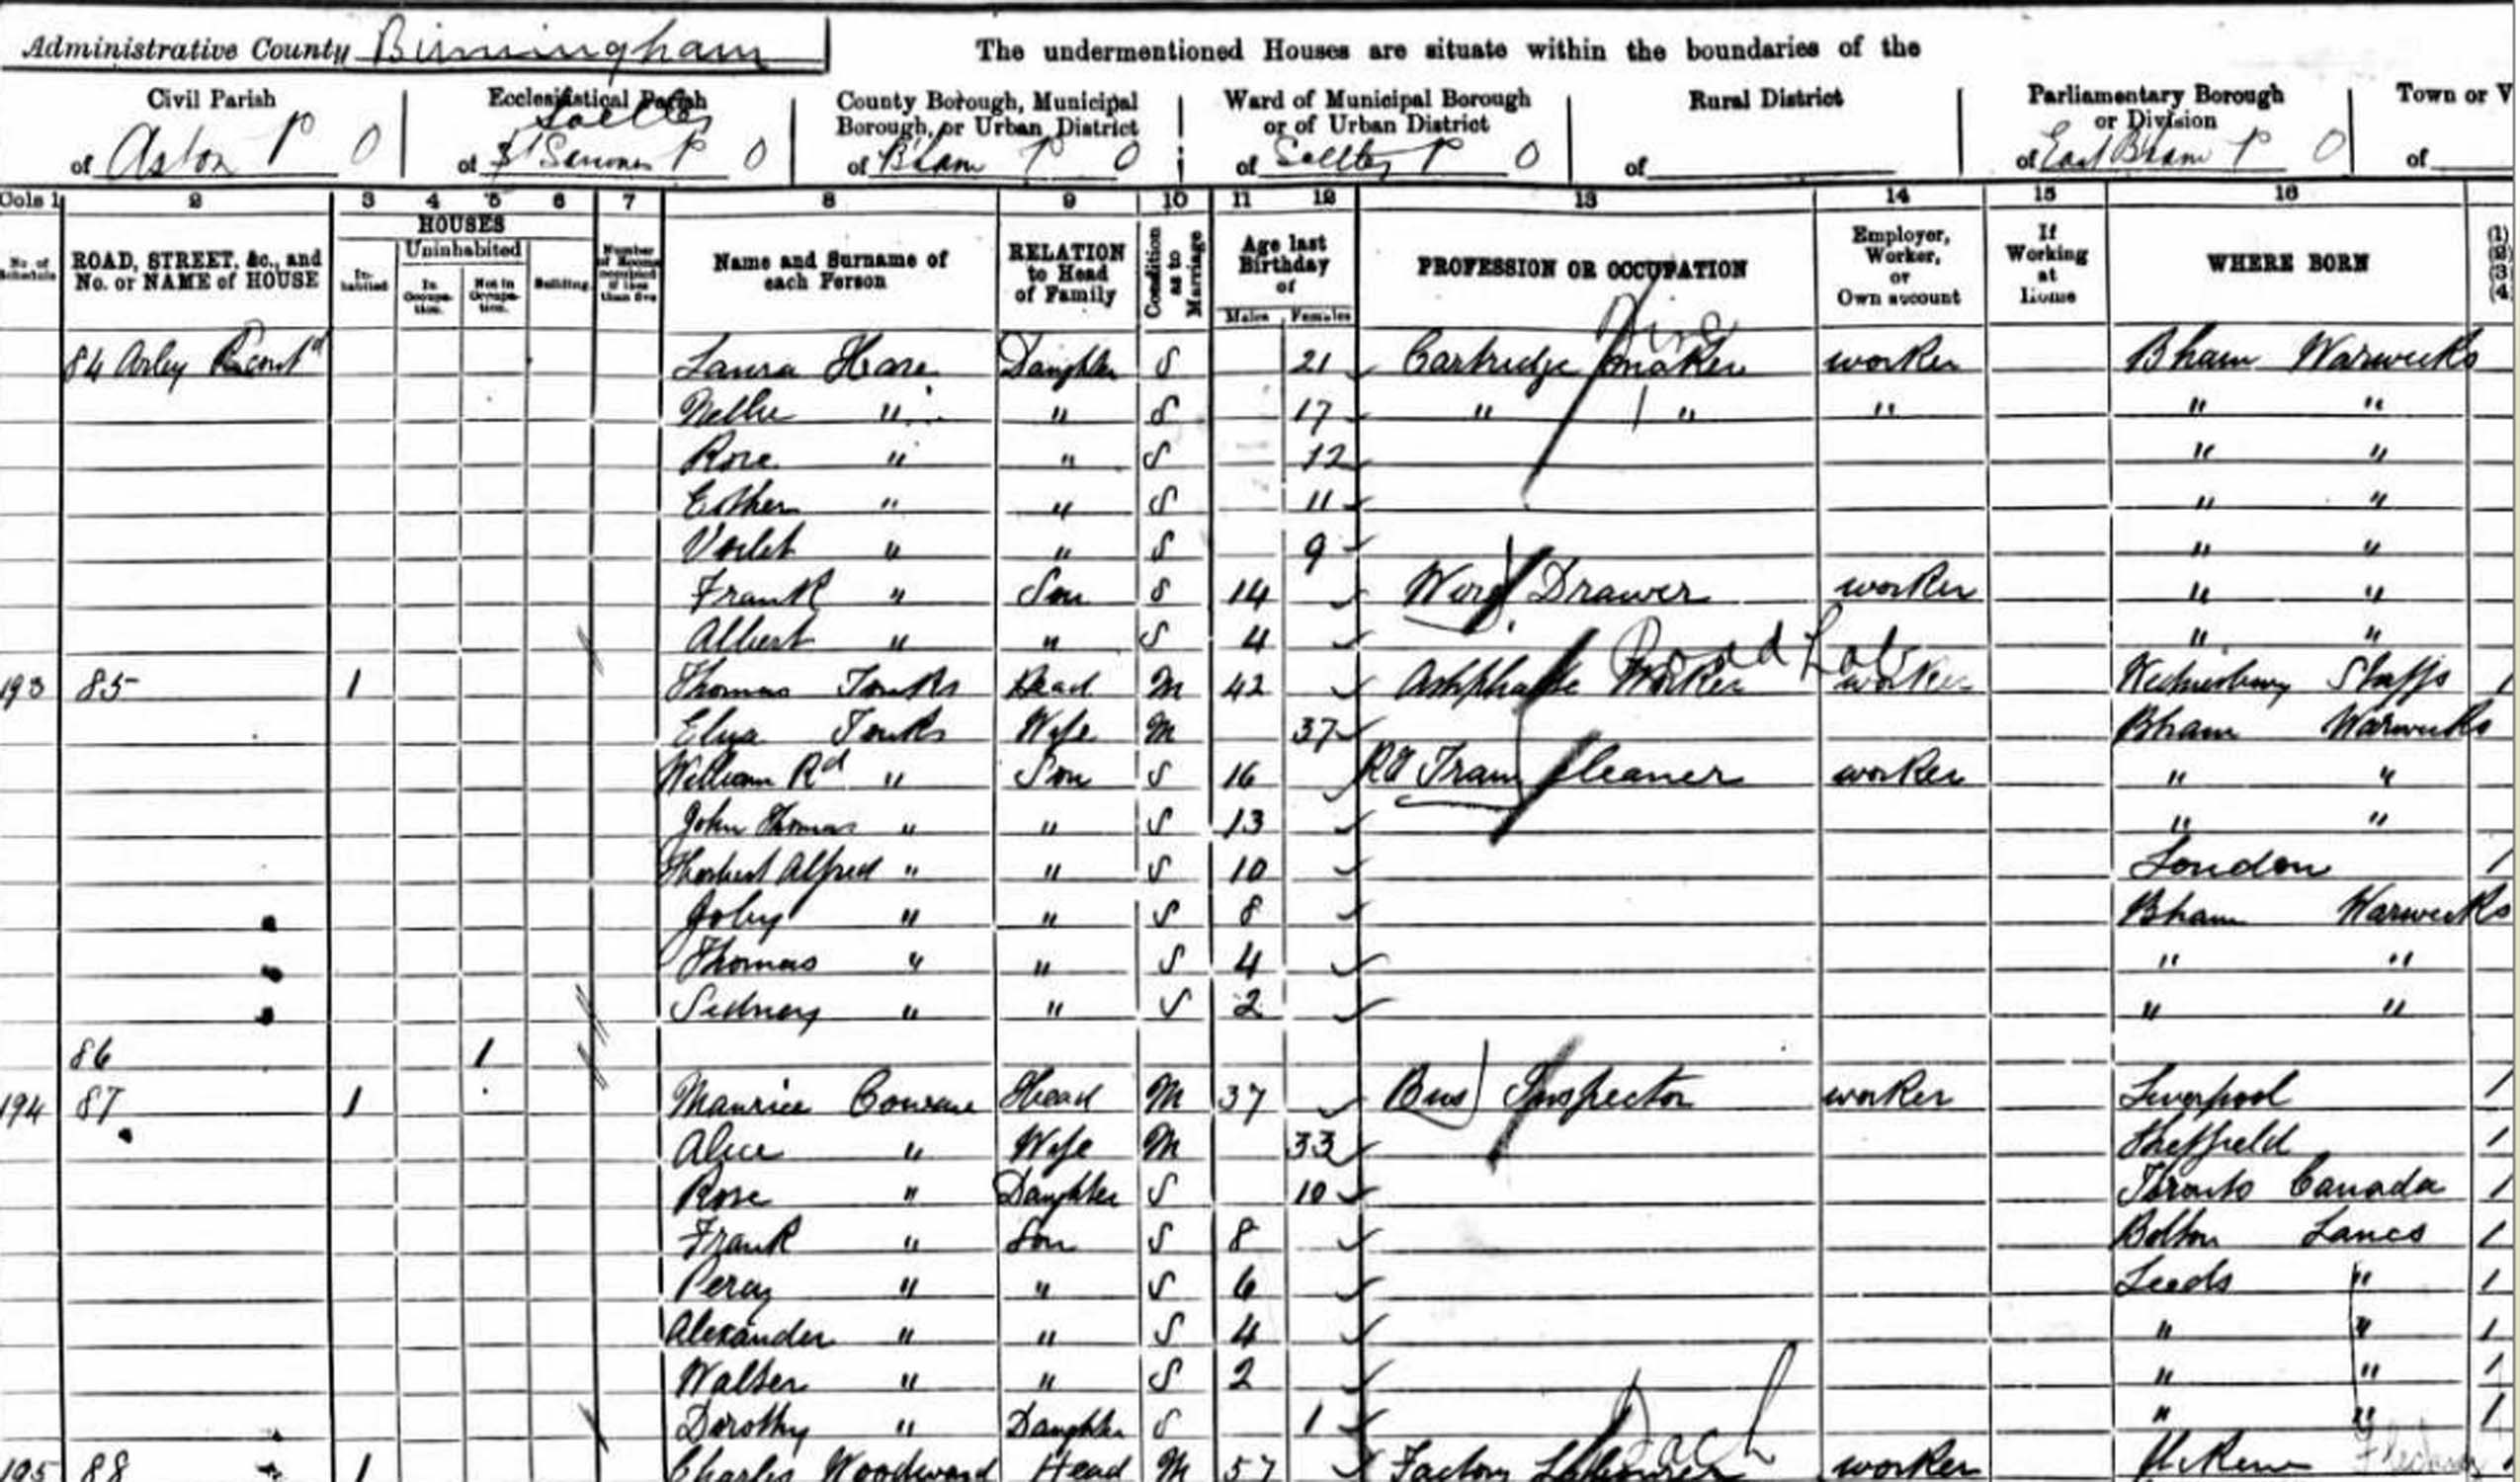 Administrative County Birmingham The undermentioned Houses are situate within the boundaries of the
Civil Parish Ecclesiastical Parish County Borough, Municipal Ward of Municipal Borough Rural District Parliamentary Borough Town or V
Saltley Borough, or Urban District or of Urban District or Division
of Aston P O of P O of B'ham P O of Saltley P O of of East Bham P O of
Cols 1 2 3 4 5 6 7 8 9 10 11 12 13 14 15 16
No. of Schedule ROAD, STREET, &c., and No. or NAME of HOUSE HOUSES In-habited Uninhabited In Occupa-tion. Not in Occupa-tion. Building Number of Rooms occupied if less than five Name and Surname of each Person RELATION to Head of Family Condition as to Marriage Age last Birthday of Males Females PROFESSION OR OCCUPATION Employer, Worker, or Own account If Working at Home WHERE BORN (1) (2) (3) (4)
84 Arley Laura Hare Daughter S 21 Cartridge maker worker Bham Warwicks
Nellie " " S 17 " " " " "
Rose " " S 12 " "
Esther " " S 11 " "
Voilet " " S 9 " "
Frank " Son S 14 Wire Drawer worker " "
Albert " " S 4 " "
Road Lab
193 85 1 Thomas Tonks Head M 42 Ashphalte Worker worker Wednesbury Staffs 1
Eliza Tonks Wife M 37 Bham Warwicks
William Rd " Son S 16 Tram Cleaner worker " "
John Thomas " " S 13 " "
Herbert Alfred " " S 10 London 1
" " S 8 Bham Warwicks
Thomas " " S 4 " "
Sidney " " S 2 " "
86 1
194 87 1 Maurice Head M 37 Bus Inspector worker Liverpool 1
Alice " Wife M 33 Sheffield 1
Rose " Daughter S 10 Toronto Canada 1
Frank " Son S 8 Bolton Lancs 1
Percy " " S 6 Leeds " 1
Alexander " " S 4 " " 1
Walter " " S 2 " " 1
Dorothy " Daughter S 1 " " 1
195 88 1 Charles Woodward Head M 57 Factory Labourer worker